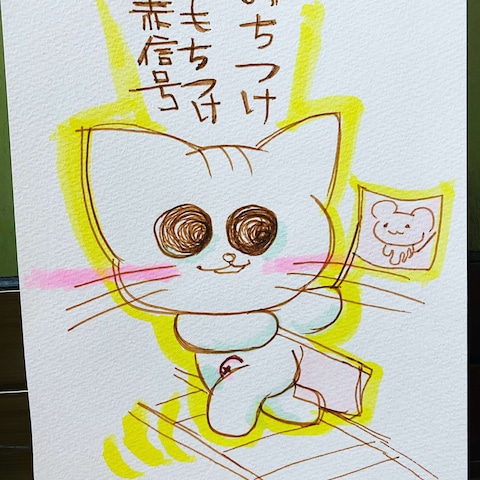 おちつけ
もちつけ
赤信号